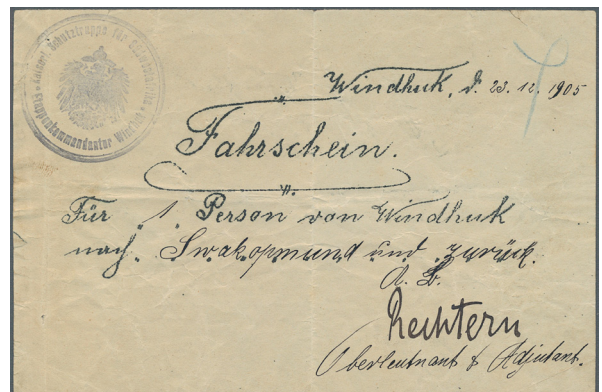 Kaiserl. Schutztruppe für Südwestafrika
Etappenkommandantur Windhuk
Windhuk, d. 23.12.1905
Fahrschein.
Für 1 Person von Windhuk
nach Swakopmund und zurück.
A. B.
Rechtern
Oberleutnant & Adjutant.